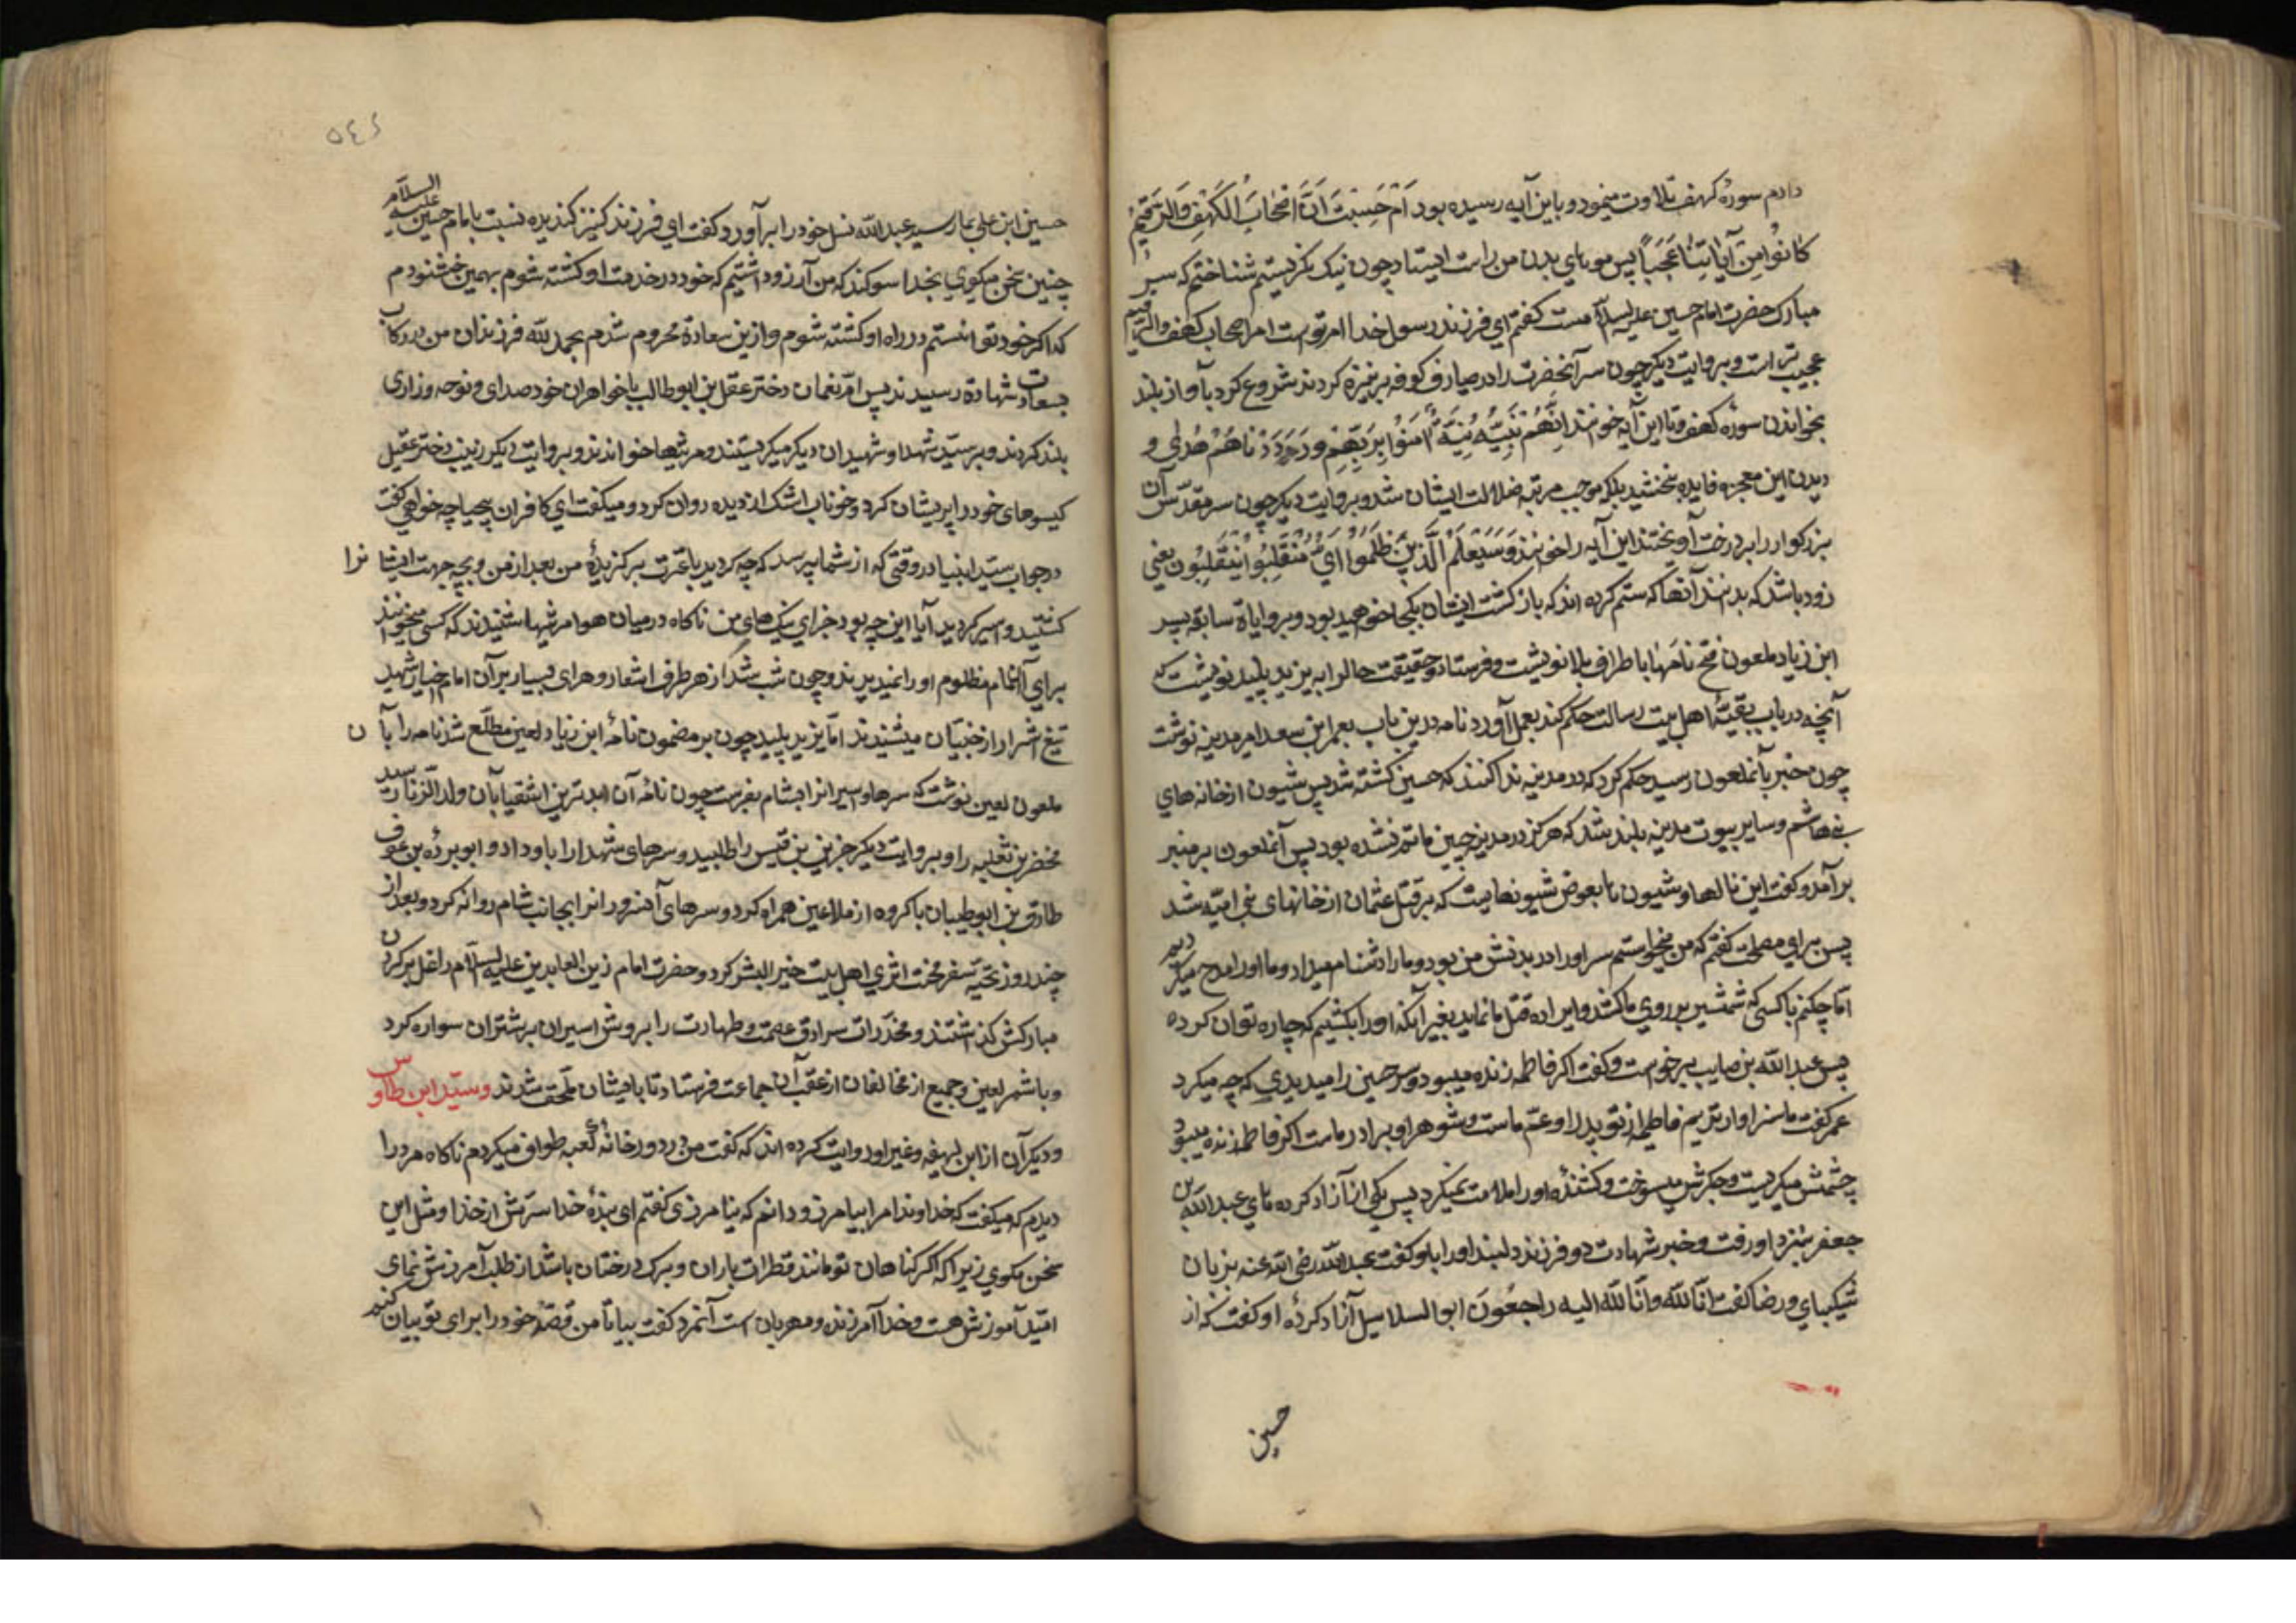 دادم سورهٔ کهف تلاوت مینمود و باین آیه رسیده بود اَمْ حَسِبْتَ اَنَّ اَصْحَابَ الْکَهْفِ وَالرَّقِیْمِ
کَانُوْا مِنْ آیَاتِنَا عَجَبًا پس موهای بدن من راست ایستاد چون نیک نکریستم شناختم که سر
مبارک حضرت امام حسین علیه السلام است کفتم ای فرزند رسول خدا امر توست امر اصحاب کهف والرقیم
عجیب تر است و بروایت دیکر چون سر آنحضرت را در صیارف کوفه بر نیزه کردند شروع کرد بآواز بلند
بخواندن سوره کهف و تا این آیه خواندند اِنَّهُمْ فِتْیَةٌ اٰمَنُوْا بِرَبِّهِمْ وَزِدْنَاهُمْ هُدًی و
دیدن این معجزه فایده نبخشید بلکه موجب مرتبه ضلالت ایشان شد و بروایت دیکر چون سر مقدس آن
بزرکوار را بر درخت آویختند این آیه را خواندند وَسَیَعْلَمُ الَّذِیْنَ ظَلَمُوْا اَیَّ مُنْقَلَبٍ یَنْقَلِبُوْنَ یعنی
زود باشد که بدانند آنها که ستم کرده اند که بازکشت ایشان بکجا خواهد بود و بروایاة سابقه پسر
ابن زیاد ملعون فتح نامها باطراف بلاد نوشت و فرستاد و حقیقت حال را به یزید پلید نوشت که
آنچه در باب بقیهٔ اهل بیت رسالت حکم کند بعمل آورد نامه درین باب بعمر ابن سعد امیر مدینه نوشت
چون خبر بآنملعون رسید حکم کرد که در مدینه ندا کنند که حسین کشته شد پس شیون از خانه های
بنی هاشم و سایر بیوت مدینه بلند شد که هرکز در مدینه چنین ماتم نشده بود پس آنملعون بر منبر
برآمد و کفت این نالها و شیون ما بعوض شیونهاییست که بر قتل عثمان از خانهای بنی امیه شد
پس برای مصلحت کفتم که من میخواستم سر او را در بدنش من بود و ما را دشنام میداد و ما او را مدح میکردیم
اما چکنم با کسی که شمشیر بر روی ما کشد و اراده قتل ما نماید بغیر آنکه او را بکشیم که چاره توان کرده
پس عبدالله بن صایب برخواست و کفت اکر فاطمه زنده میبود و سر حسین را میدیدی که چه میکرد
عمر کفت ما سزاوار تریم فاطمه از تو پدر او عم ماست و شوهر او برادر ماست اکر فاطمه زنده میبود
چشمش میکریست و جکرش میسوخت و کشندهٔ او را ملامت نمیکرد پس یکی از آزاد کرده های عبدالله بن
جعفر بنزد او رفت و خبر شهادت دو فرزند دلبند او را باو کفت عبدالله رضی الله عنه بزبان
شیکبای و رضا کفت انا لله وانا لله الیه راجعون ابو السلاسل آزاد کردهٔ او کفت که از
حسین
٥٤٤
حسین ابن علی بما رسید عبدالله نسل خود را برآورد و کفت ای فرزند کنیز کندیده نسبت بامام حسین علیه السلام
چنین سخن میکوی بخدا سوکند که من آرزو داشتیم که خود در خدمت او کشته شوم بهمین خشنودم
که اکر خود نتوانستم در راه او کشته شوم و ازین سعادة محروم شدم بحمد لله فرزندان من در رکاب
بسعادت شهادة رسیدند پس ام نعمان دختر عقیل بن ابوطالب با خواهران خود صدای و نوحه وزاری
بلند کردند و بر سید شهدا و شهیدان دیکر میکریستند و مرثیها خواندند و بروایت دیکر زینب دختر عقیل
کیسوهای خود را پریشان کرد و خوناب اشک از دیده روان کرد و میکفت ای کافران بیحیا چه خواهی کفت
در جواب سید انبیا در وقتی که از شما پرسد که چه کردید با عترت برکزیدهٔ من بعد از من و بچه جهت ایشانرا
کشتید و اسیر کردید آیا این چه بود جزای نیک های من ناکاه درمیان هوا مرثیها شنیدند که کسی میخواند
برای آن امام مظلوم او را نمیدیدند و چون شب شد از هر طرف اشعار و هرای بسیار بر آن امام اخیار شهید
تیغ اشرار از جنیان میشنیدند اما یزید پلید چون بر مضمون نامهٔ ابن زیاد لعین مطلع شد نامه را بآن
ملعون لعین نوشت که سرها و اسیرانرا بشام بفرست چون نامهٔ آن بدترین اشقیا بآن ولد الزنا رسید
مخضر بن ثعلبه را و بروایت دیکر جزین بن قیس را طلبید و سرهای شهدا را باو داد و ابو برده بن عوف
طارق بن ابوطیبان با کروه از ملاعین همراه کرد و سرهای آنسرورانرا بجانب شام روانه کرد و بعد از
چند روز تحیه سفر محنت اثری اهل بیت خیر البشر کرد و حضرت امام زین العابدین علیه السلام را غل بر کردن
مبارکش کذاشتند و مخدرات سرادق عصمت و طهارت را بروش اسیران بر شتران سواره کرد
و با شمر لعین و جمیع از مخالفان از عقب آن جماعت فرستاد تا بایشان ملحق شدند و سید ابن طاوس
و دیکر آن از ابن لهیعه و غیر او روایت کرده اند که کفت من در دور خانهٔ کعبه طواف میکردم ناکاه مردرا
دیدم که میکفت که خداوندا مرا بیامرز و دانم که نیامرزی کفتم ای بندهٔ خدا بترس از خدا و مثل این
سخن مکوی زیرا که اکر کناهان تو مانند قطرات باران و برک درختان باشد از طلب آمرزش نمای
امید آموزش هست و خدا آمرزنده و مهربان است آنمرد کفت بیا تا من قصهٔ خود را برای تو بیان کنم